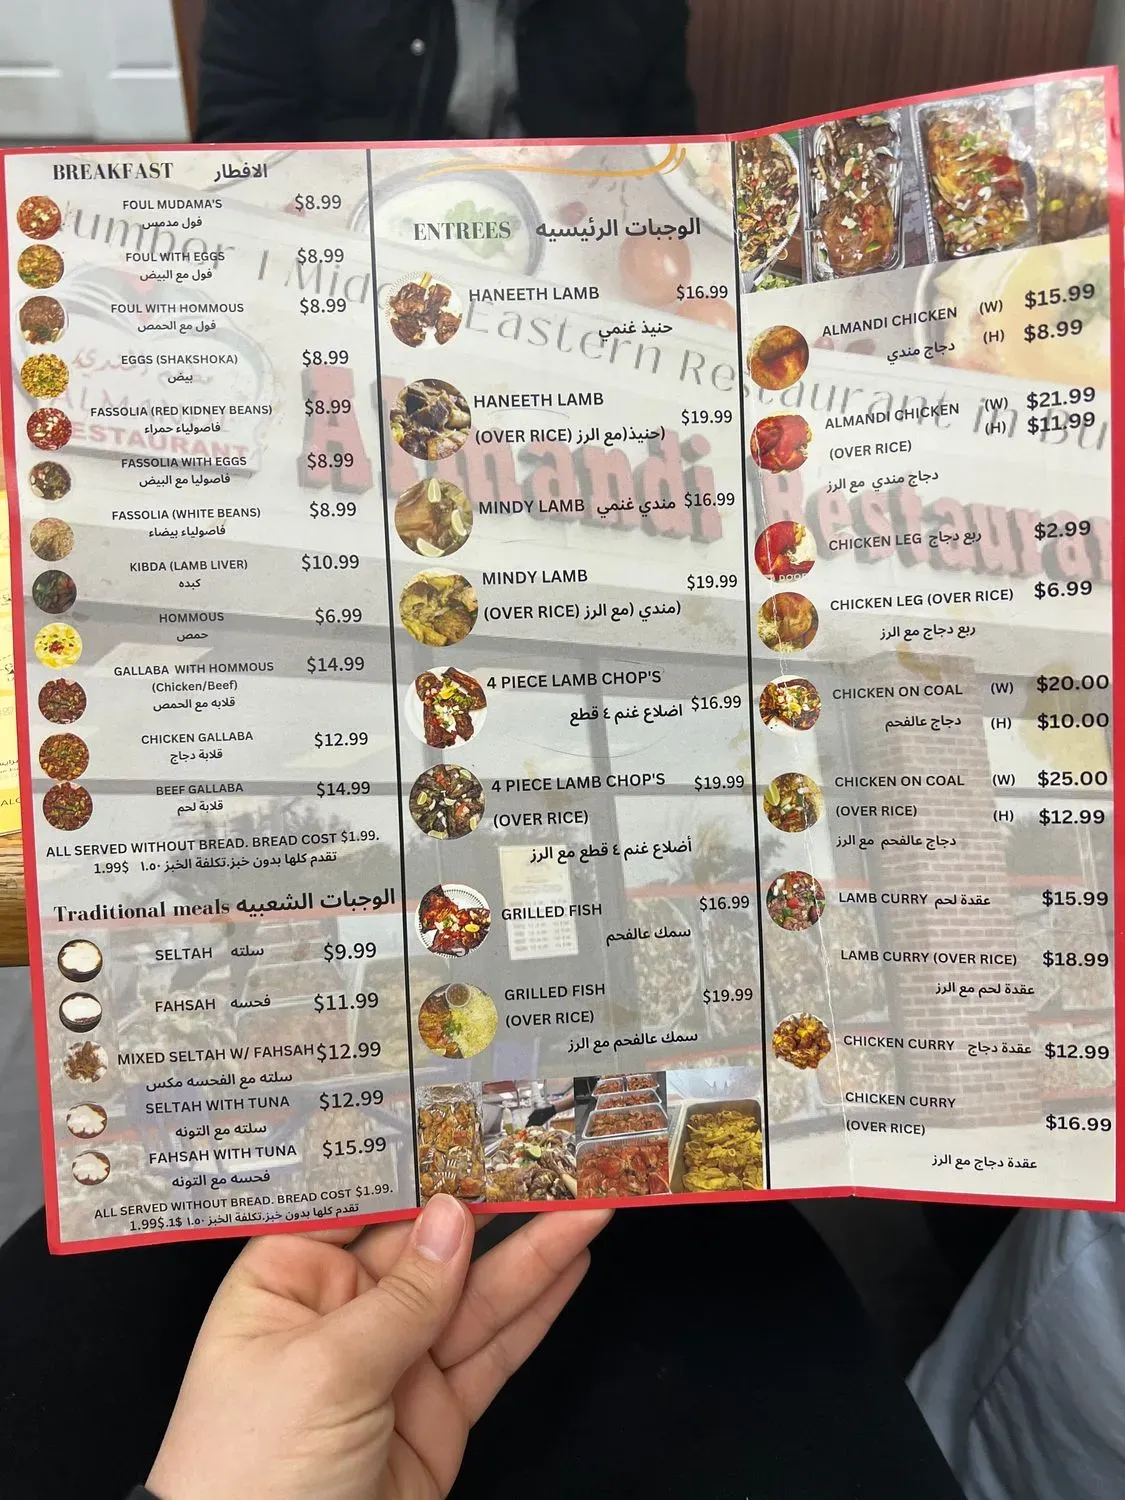 BREAKFAST الافطار
FOUL MUDAMA'S $8.99
فول مدمس
FOUL WITH EGGS $8.99
فول مع البيض
FOUL WITH HOMMOUS $8.99
فول مع الحمص
EGGS (SHAKSHOKA) $8.99
بيض
FASSOLIA (RED KIDNEY BEANS) $8.99
فاصولياء حمراء
FASSOLIA WITH EGGS $8.99
فاصوليا مع البيض
FASSOLIA (WHITE BEANS) $8.99
فاصولياء بيضاء
KIBDA (LAMB LIVER) $10.99
كبده
HOMMOUS $6.99
حمص
GALLABA WITH HOMMOUS $14.99
(Chicken/Beef)
قلابه مع الحمص
CHICKEN GALLABA $12.99
قلابة دجاج
BEEF GALLABA $14.99
قلابة لحم
ALL SERVED WITHOUT BREAD. BREAD COST $1.99.
تقدم كلها بدون خبز.تكلفة الخبز ١.٥٠ $1.99
Traditional meals الوجبات الشعبيه
SELTAH سلته $9.99
FAHSAH فحسه $11.99
MIXED SELTAH W/ FAHSAH $12.99
سلته مع الفحسه مكس
SELTAH WITH TUNA $12.99
سلته مع التونه
FAHSAH WITH TUNA $15.99
فحسه مع التونه
ALL SERVED WITHOUT BREAD. BREAD COST $1.99.
تقدم كلها بدون خبز.تكلفة الخبز ١.٥٠ $1.99$.1
ENTREES الوجبات الرئيسيه
HANEETH LAMB $16.99
حنيذ غنمي
HANEETH LAMB $19.99
(OVER RICE) حنيذ(مع الرز)
MINDY LAMB مندي غنمي $16.99
MINDY LAMB $19.99
(OVER RICE) مندي (مع الرز)
4 PIECE LAMB CHOP'S $16.99
اضلاع غنم ٤ قطع
4 PIECE LAMB CHOP'S $19.99
(OVER RICE)
أضلاع غنم ٤ قطع مع الرز
GRILLED FISH $16.99
سمك عالفحم
GRILLED FISH $19.99
(OVER RICE)
سمك عالفحم مع الرز
ALMANDI CHICKEN (W) $15.99
دجاج مندي (H) $8.99
ALMANDI CHICKEN (W) $21.99
(H) $11.99
(OVER RICE)
دجاج مندي مع الرز
CHICKEN LEG ربع دجاج $2.99
CHICKEN LEG (OVER RICE) $6.99
ربع دجاج مع الرز
CHICKEN ON COAL (W) $20.00
دجاج عالفحم (H) $10.00
CHICKEN ON COAL (W) $25.00
(OVER RICE) (H) $12.99
دجاج عالفحم مع الرز
LAMB CURRY عقدة لحم $15.99
LAMB CURRY (OVER RICE) $18.99
عقدة لحم مع الرز
CHICKEN CURRY عقدة دجاج $12.99
CHICKEN CURRY
(OVER RICE) $16.99
عقدة دجاج مع الرز
Number 1 Middle Eastern Restaurant in Bu
Almandi Restaurant
ALMANDI
RESTAURANT